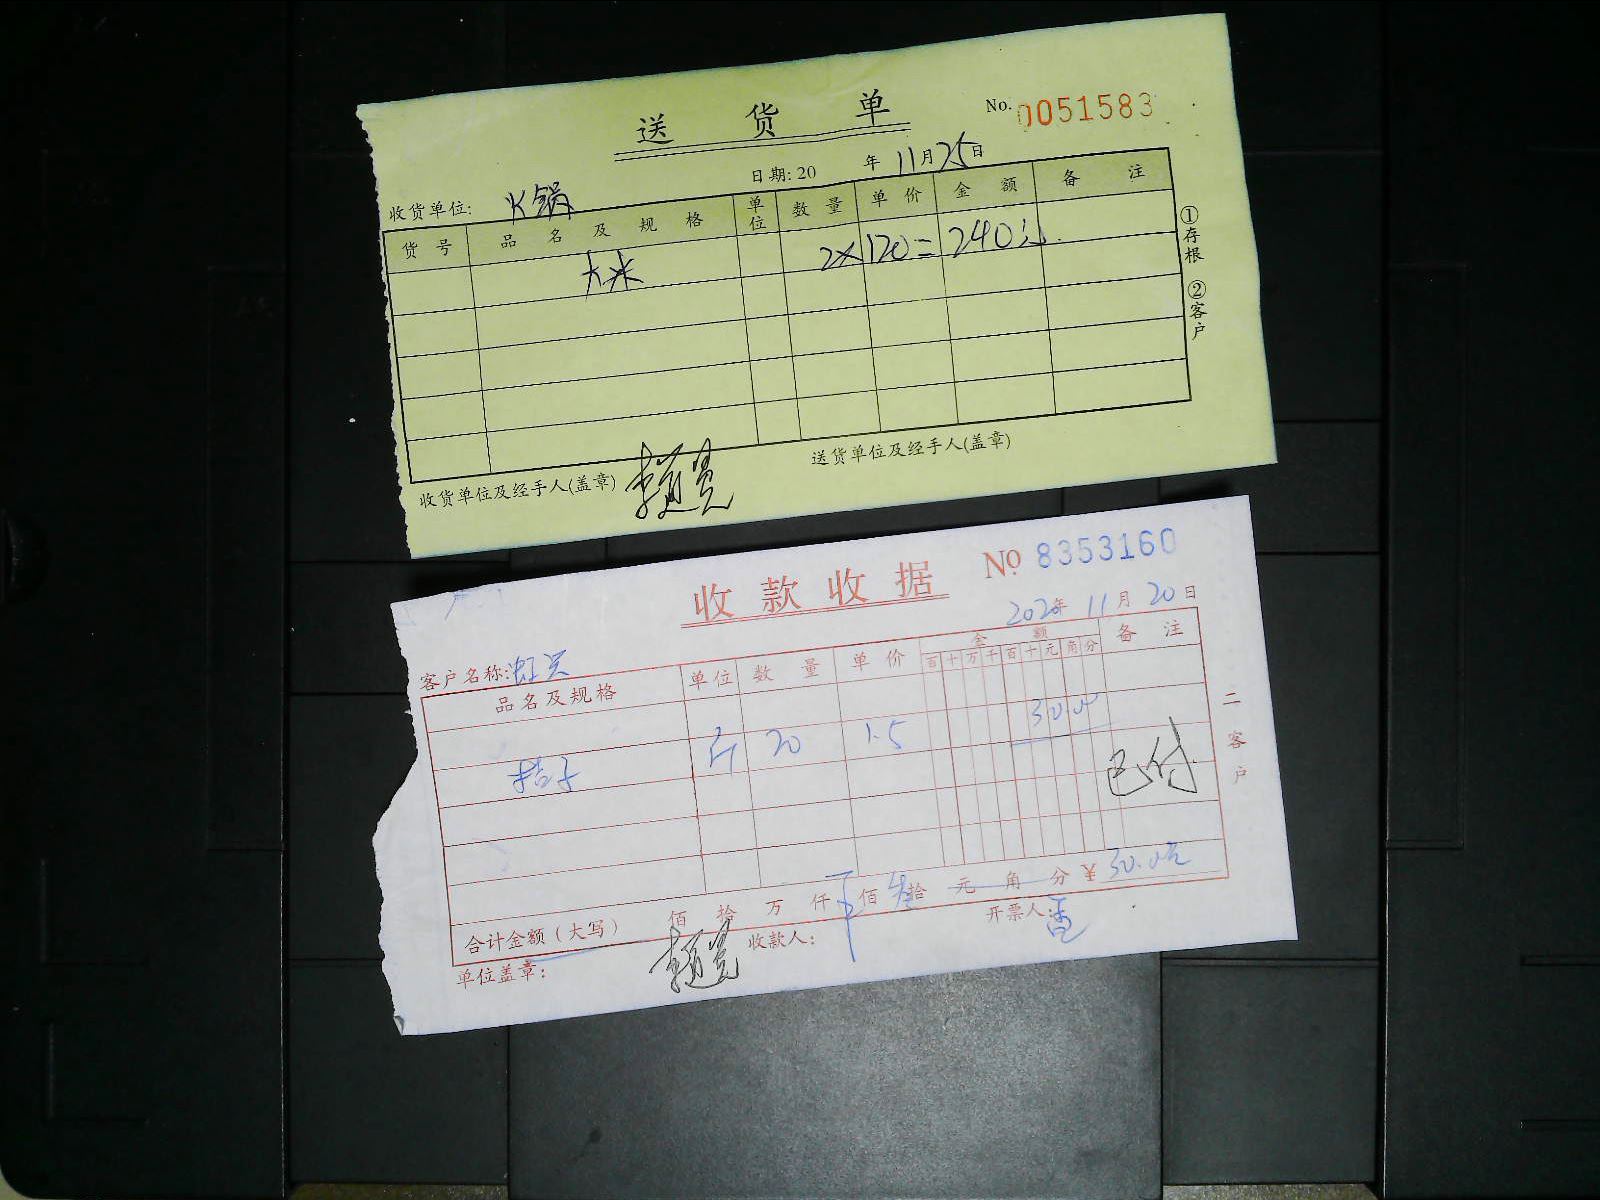 送货单
No. 0051583
日期: 20 年 11月25日
收货单位: 火锅
货号 品名及规格 单位 数量 单价 金额 备注
大米 2×120=240元.
①存根 ②客户
收货单位及经手人(盖章)
送货单位及经手人(盖章)
收款收据
№ 8353160
2020年 11月 20日
客户名称:
品名及规格 单位 数量 单价 金额 备注
百十万千百十元角分
桔子 斤 20 1.5 3000
已付
二客户
合计金额(大写) 佰 拾 万 仟 佰 叁拾 元 角 分 ¥ 30.0元
单位盖章:
收款人:
开票人: